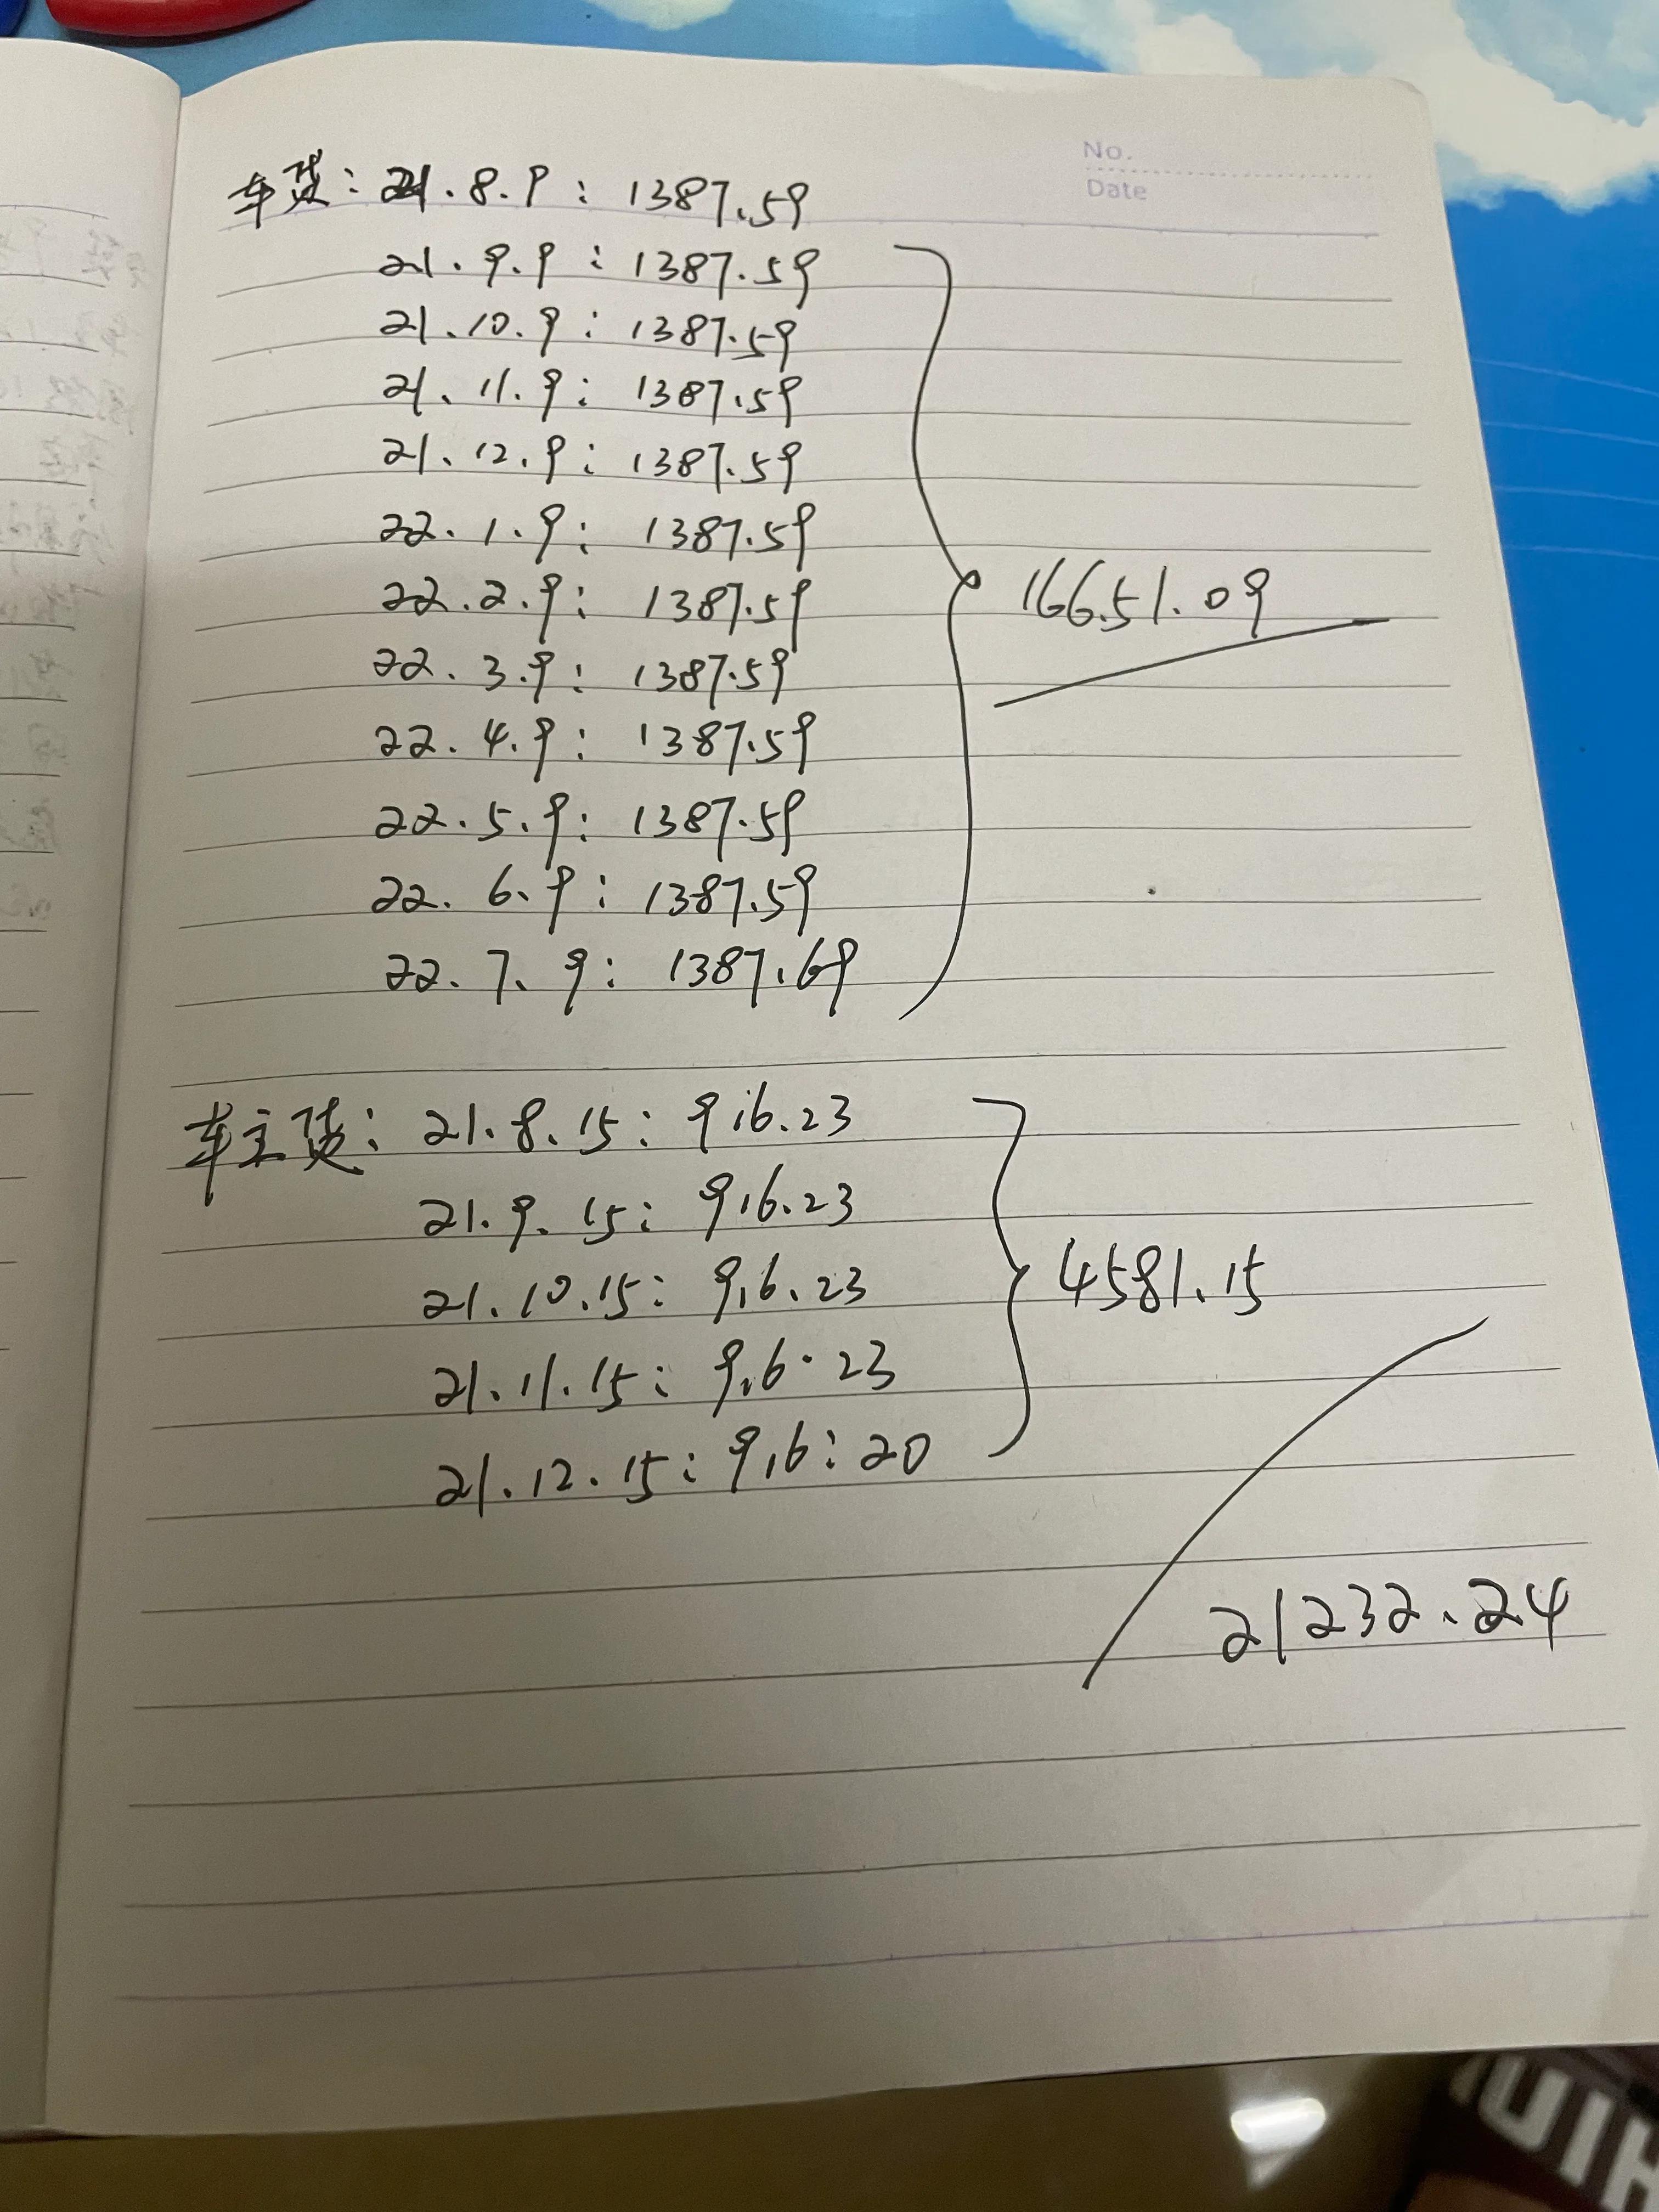 No.
Date
车贷: 21.8.9: 1387.59
21.9.9: 1387.59
21.10.9: 1387.59
21.11.9: 1387.59
21.12.9: 1387.59
22.1.9: 1387.59
22.2.9: 1387.59
22.3.9: 1387.59
22.4.9: 1387.59
22.5.9: 1387.59
22.6.9: 1387.59
22.7.9: 1387.69
16651.09
车主贷: 21.8.15: 916.23
21.9.15: 916.23
21.10.15: 916.23
21.11.15: 916.23
21.12.15: 916:20
4581.15
21232.24